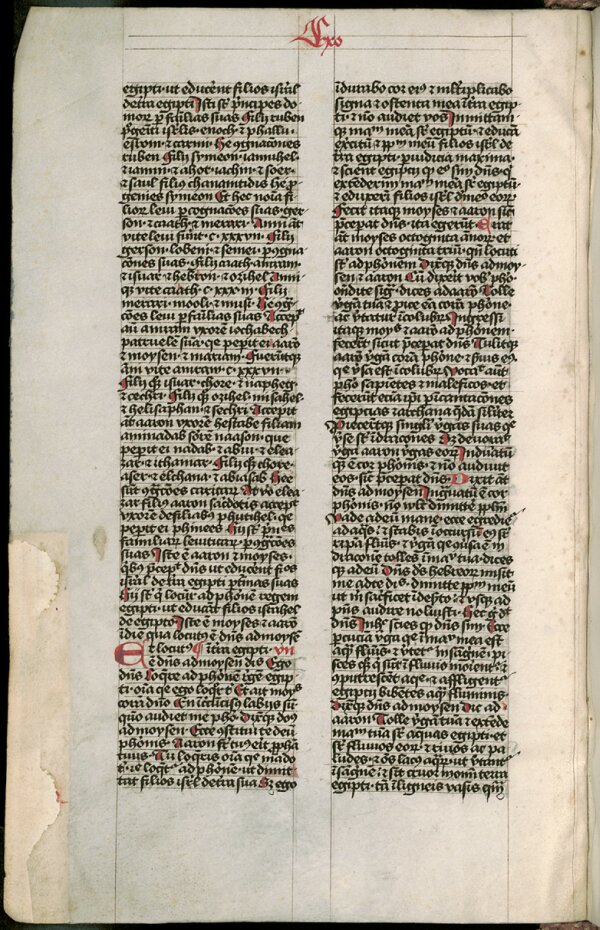 Exo
egipti · ut educerent filios isrl
de tra egipti Isti st pncipes do
mor p familias suas Filij ruben
pgeniti isrlis · enoch · et phallu ·
esrom · et carmi · He cognacones
ruben Filij symeon · iamuhel ·
et iamin · et ahot · iachin · et soer ·
et saul filius chananitidis he p
genies symeon Et hec noia fi
lior leui p cognacoes suas · ger
son · et caath · et merari · Anni aut
vite leui fuerunt · c · xxxvii · Filij
gerson · lobeni · et semei · p cogna
cones suas · Filij caath · amram ·
et isuar · et hebron · et ozihel · Anni
qz vite caath · c · xxx iii · Filij
merari · mooli · et musi · He cog
cones leui p familias suas Accep
aut amram uxore iochabech
patruele sua · que pepit ei aaro
et moysen · et mariam · Fueruntqz
ani vite amram · c · xxxvii ·
Filij qz isuar · chore · et napheg ·
et cechri · Filij qz ozihel · misahel ·
et helisaphan · et sechri · Accepit
aut aaron uxore helisabe filiam
aminadab sorore naason · que
pepit ei nadab · et abiu · et elea
zar · et ithamar · Filij qz chore ·
aser · et elchana · et abiasab · Hee
sut cognacoes caritarum At vo elea
zar filius aaron sacerdotis accepit
uxore de filiabus phutihel · que
pepit ei phinees Hij st pncipes
familiar leuiticar p cogcoes
suas Iste e aaron et moyses ·
qbus pcepit dns ut educerent filios
isral de tra egipti p turmas suas
Hij st qui locuti ad pharaone regem
egipti · ut educat filios israhel
de egipto Iste e moyses et aaro
i die qua locutus e dns ad moyse
Et locut i tra egipti · VII
e dns ad moysen dis Ego
dns Loqre ad pharone rege egip
ti · oia que ego loquor ti Et ait moyses
cora dno En icircucisus labijs su
quo audiet me pharao Dixitqz dns
ad moysen Ecce constitui te deu
pharonis Aaron frat tuus erit ppha
tuus Tu loqueris oia que mado
ti · et ille loquetur ad pharone · ut dimit
tat filios isrl de tra sua Sz ego
idurabo cor eius et multiplicabo
signa et ostenta mea i tra egip
ti · et no audiet vos Inmittam
qz manu mea sr egiptu · et educa
exercitu et pplm meu filios isrl de
tra egipti · p iudicia maxima ·
et scient egiptij qr ego sum dns · q
extederim manu mea sr egiptu
et eduxeri filios isrl de medio eor
Fecit itaqz moyses et aaron sicut
pcepat dns · ita egerunt Erat
aut moyses octoginta annor et
aaron octoginta trium · qn locuti
st ad pharonem Dixitqz dns ad moy
sen et aaron Cu dixerit vobis phao
ondite sig · dices ad aaron Tolle
vga tua et pice ea cora pharone ·
ac vtatur i colubrum Ingressi
itaqz moyses et aaro ad pharonem ·
fecerut sicut pcepat dns · Tulitqz
aaro vga cora pharone et servis eius ·
que vsa est i colubru Vocavit aut
pharo sapietes et maleficos · et
fecerut etiam ipi p icantacones
egipcias et archana qda siliter
Proiecerutqz singuli vgas suas que
vse st i dracones Sz deuorauit
vga aaron vgas eor Induratu
qz e cor pharonis · et no audiuit
eos · sic pcepat dns Dixit aut
dns ad moysen Ingrauatu e cor
pharonis · no vlt dimitte pplm
Vade ad eu mane · ecce egredietur
ad aqs · et stabis i occursu eius sr
ripa flumis · et vga que usa e in
dracone tolles i manu tua · dices
qz ad eu Dns ds hebreor misit
me ad te dis · dimitte pplm meu
ut sacrificet i deserto · et usqz ad
pns audire noluisti · Hec g dt
dns In hoc scies qr dns sim Ecce
pcutia vga que i manu mea est
aqm flumis · et vtetur i sanguinem · pi
sces qz qui sut i fluuio morient et
computrescent aque · et affligent
egiptij bibentes aqm fluminis ·
Dixitqz dns ad moysen Dic ad
aaron Tolle vga tua et extede
manu tua sr aquas egipti · et
sr fluuios eor · et riuos ac pa
ludes · et oes lacus aqr · ut vtant
i sanguine · et sit cruor i omni terra
egipti · tam i ligneis vasis qm